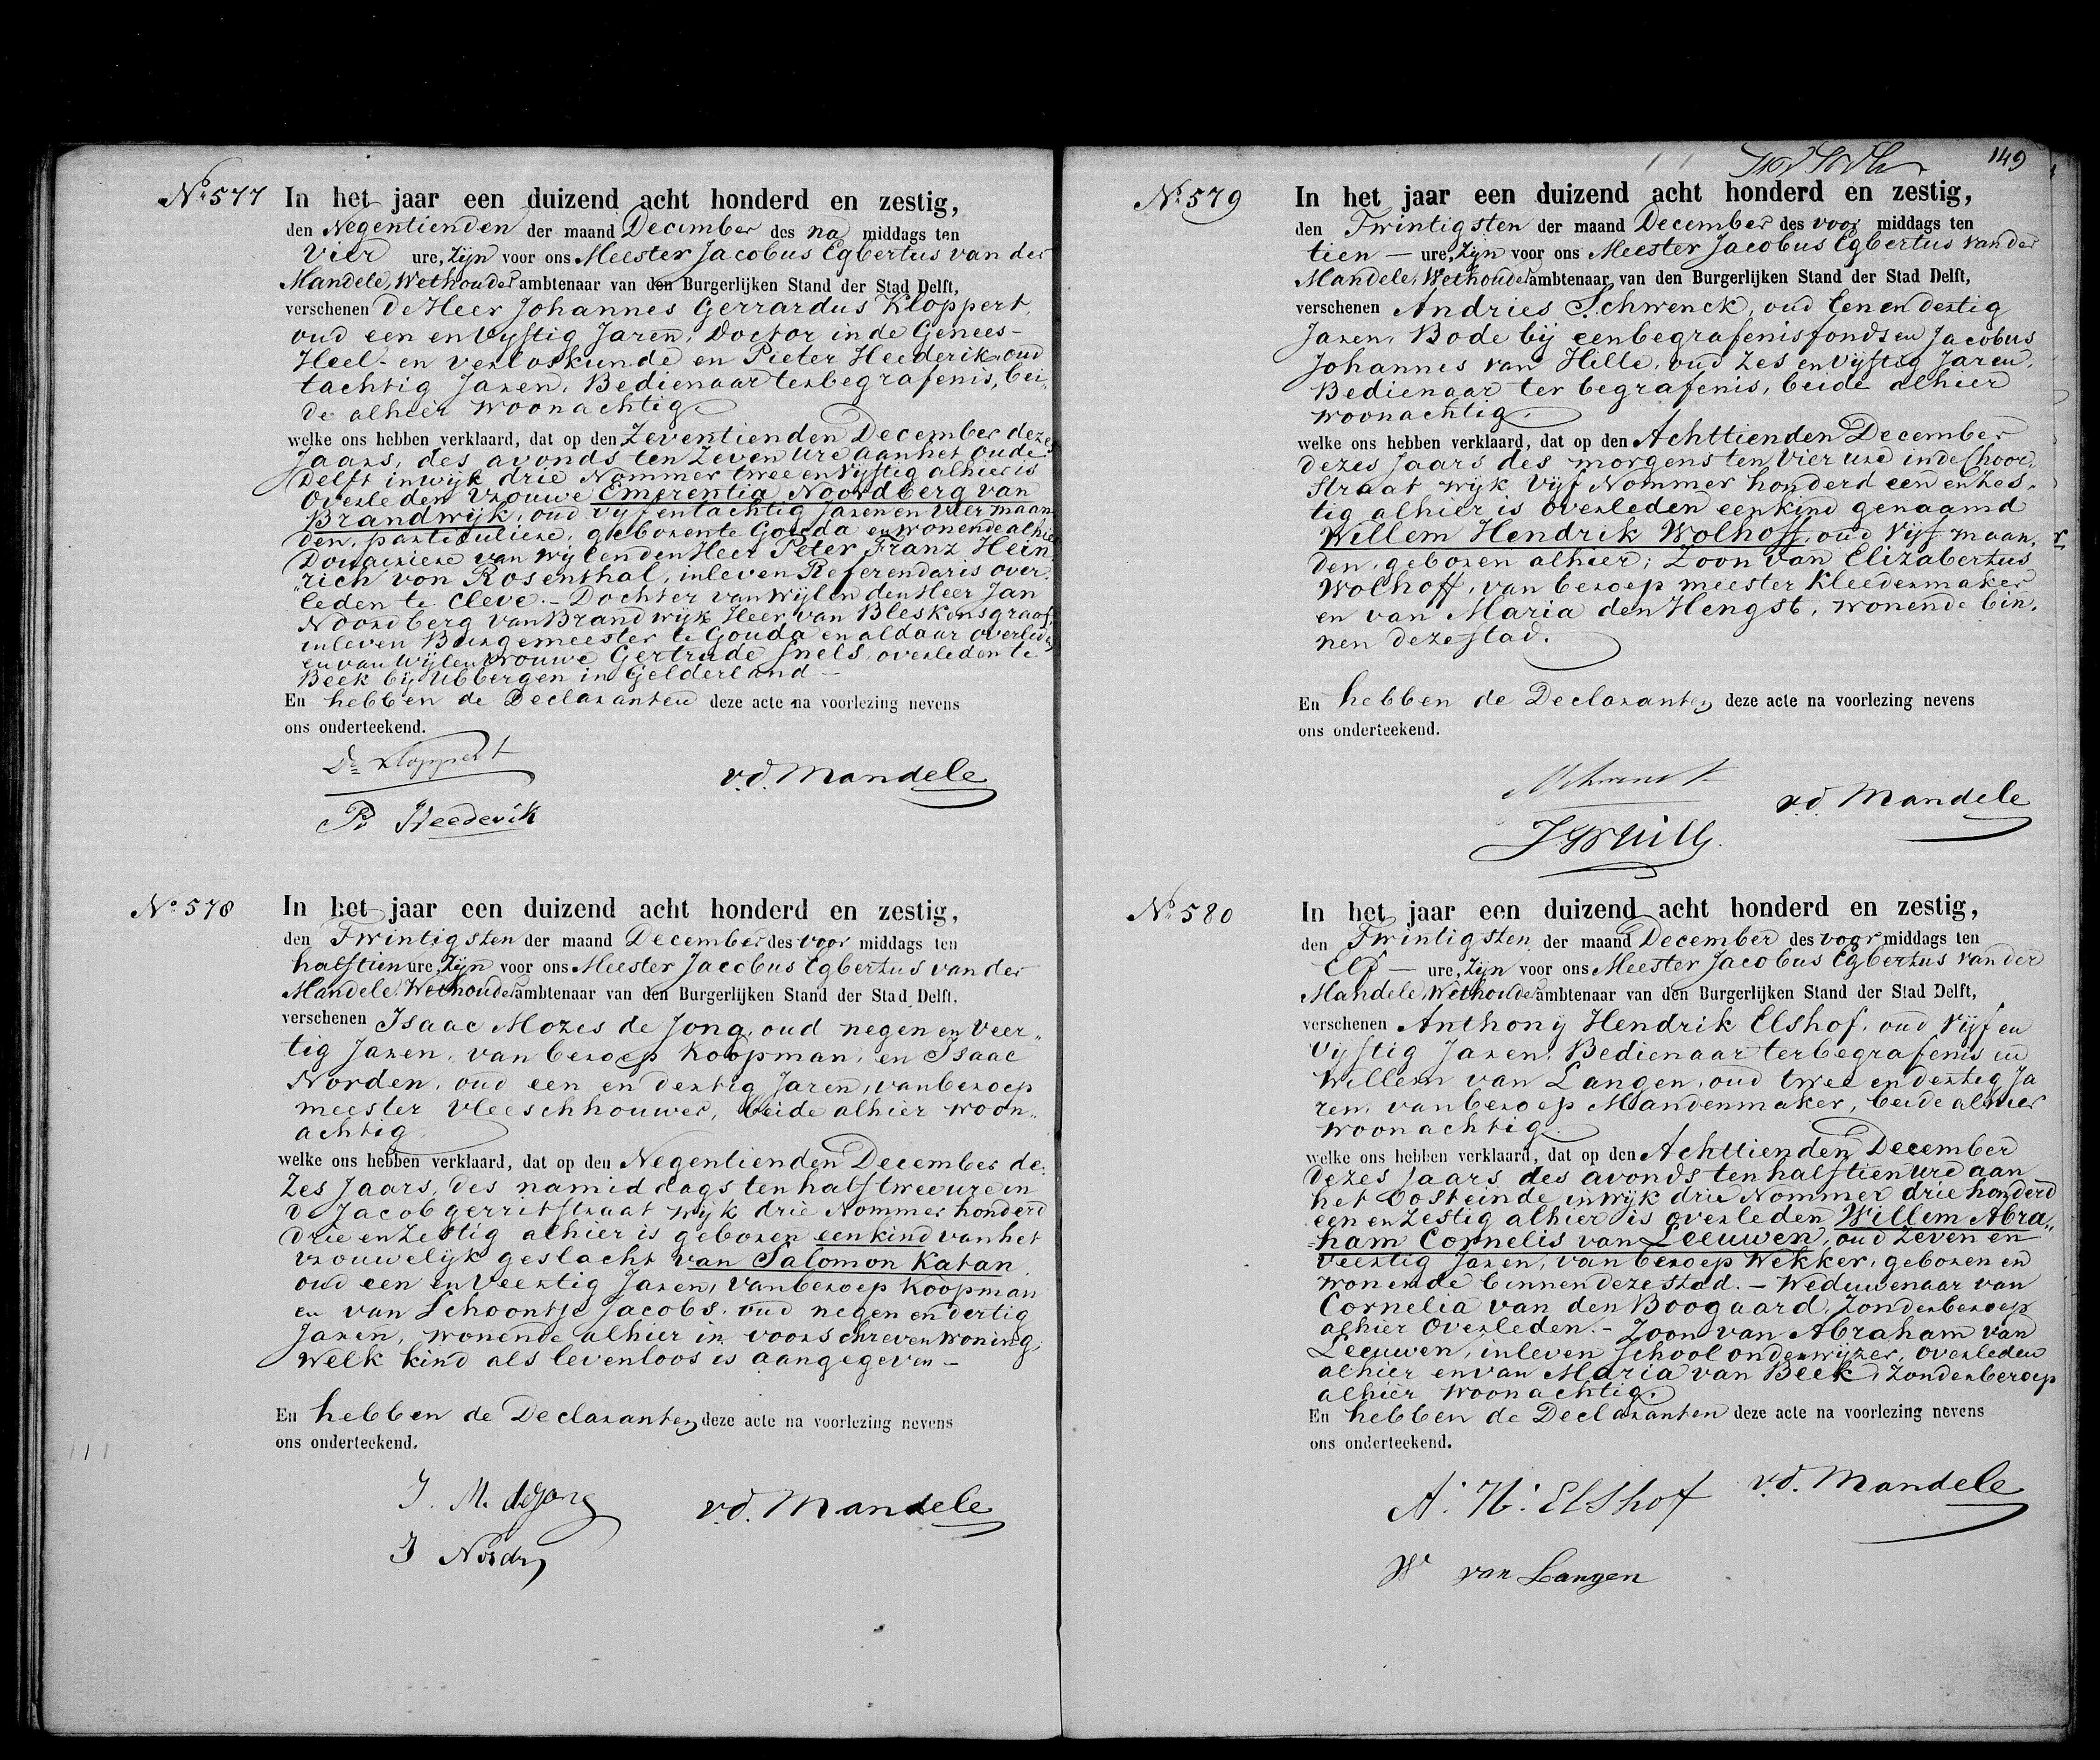 No 577 In het jaar een duizend acht honderd en zestig,
den Negentienden der maand December des na middags ten
Vier ure, Zijn voor ons Meester Jacobus Egbertus van der
Mandele, Wethouder ambtenaar van den Burgerlijken Stand der Stad Delft,
verschenen De Heer Johannes Gerrardus Kloppert,
oud een en Vijftig Jaren, Doctor in de Genees-
Heel- en verloskunde en Pieter Heederik, oud
tachtig Jaren, Bedienaar ter begrafenis, bei,
de alhier woonachtig
welke ons hebben verklaard, dat op den Zeventienden December dezes
Jaars, des avonds ten Zeven Ure aan het Oude
Delft in wijk drie Nommer twee en Vijftig alhier is
Overleden Vrouwe Emerentia Noordberg van
Brandwijk, oud vijf en tachtig Jaren en Vier maan
den, particuliere, geboren te Gouda en wonende alhier
Douairiere van wijlen den Heer Peter Franz Hein
"rich von Rosenthal, in leven Referendaris over,
leden te Cleve. - Dochter van Wijlen den Heer Jan
Noordberg van Brandwijk Heer van Bleskensgraaf,
in leven Burgemeester te Gouda en aldaar overleden
en van Wijlen Vrouwe Gertrude Snels, overleden te
Beek bij Ubbergen in Gelderland -
En hebben de Declaranten deze acte na voorlezing nevens
ons onderteekend.
Dr Kloppert
v.d. Mandele
P. Heederik
No 578 In het jaar een duizend acht honderd en zestig,
den Twintigsten der maand December des voor middags ten
half tien ure, Zijn voor ons Meester Jacobus Egbertus van der
Mandele, Wethouder ambtenaar van den Burgerlijken Stand der Stad Delft,
verschenen Isaac Mozes de Jong, oud negen en Veer,,
tig Jaren, van beroep Koopman, en Isaac
Norden, oud een en dertig Jaren, van beroep
meester Vleeschhouwer, beide alhier woon,,
achtig,
welke ons hebben verklaard, dat op den Negentienden December de,
Zes Jaars, des namiddags ten half twee ure in
de Jacobgerritstraat wijk drie Nommer honderd
drie en Zestig alhier is geboren een kind van het
vrouwelijk geslacht van Salomon Katan,
oud een en Veertig Jaren, Van beroep Koopman
en van Schoontje Jacobs, oud negen en dertig
Jaren, wonende alhier in voorschreven woning,
welk kind als levenloos is aangegeven -
En hebben de Declaranten deze acte na voorlezing nevens
ons onderteekend.
I. M. de Jong
v.d. Mandele
I Norden
149
No 579 In het jaar een duizend acht honderd en zestig,
den Twintigsten der maand December des voor middags ten
tien - ure, Zijn voor ons Meester Jacobus Egbertus van der
Mandele, Wethouder ambtenaar van den Burgerlijken Stand der Stad Delft,
verschenen Andries Schwenck, oud Een en dertig
Jaren, Bode bij een begrafenisfonds en Jacobus
Johannes van Hille, oud Zes en Vijftig Jaren,
Bedienaar ter begrafenis, beide alhier
woonachtig.
welke ons hebben verklaard, dat op den Achttienden December
dezes Jaars des morgens ten Vier ure in de Choor,,
straat wijk Vijf Nommer honderd een en Zes,
tig alhier is overleden een kind genaamd
Willem Hendrik Wolhoff, oud Vijf maan,
den, geboren alhier; Zoon van Elizabertus
Wolhoff, van beroep meester Kleedermaker
en van Maria den Hengst, wonende bin,
nen deze stad.
En hebben de Declaranten deze acte na voorlezing nevens
ons onderteekend.
v.d. Mandele
No 580 In het jaar een duizend acht honderd en zestig,
den Twintigsten der maand December des voor middags ten
Elf - ure, Zijn voor ons Meester Jacobus Egbertus van der
Mandele, Wethouder ambtenaar van den Burgerlijken Stand der Stad Delft,
verschenen Anthonij Hendrik Elshof, oud Vijf en
Vijftig Jaren, Bedienaar ter begrafenis en
Willem van Langen, oud twee en dertig Ja
ren, van beroep Mandenmaker, beide alhier
woonachtig.
welke ons hebben verklaard, dat op den Achttienden December
dezes Jaars des avonds ten half tien ure aan
het Oosteinde in wijk drie Nommer drie honderd
een en Zestig alhier is overleden Willem Abra,,
ham Cornelis van Leeuwen, oud Zeven en
Veertig Jaren, van beroep Wekker, geboren en
wonende binnen deze stad. - Weduwenaar van
Cornelia van den Boogaard, Zonder beroep
alhier Overleden. - Zoon van Abraham van
Leeuwen, in leven School onderwijzer, overleden
alhier en van Maria van Beek, Zonder beroep
alhier woonachtig.
En hebben de Declaranten deze acte na voorlezing nevens
ons onderteekend.
A. H. Elshof
v.d. Mandele
W van Langen